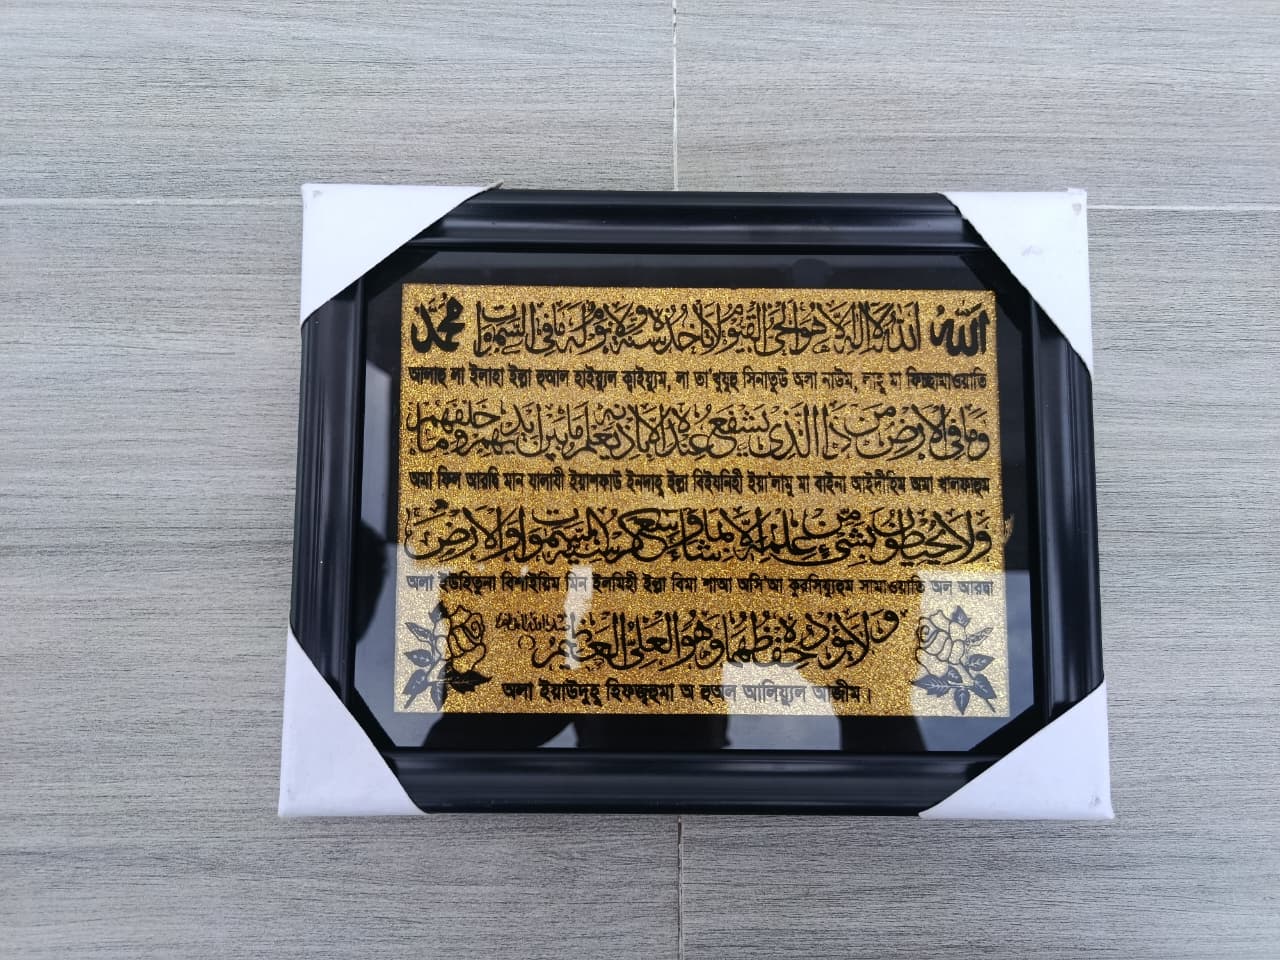 الله الله لا اله الا هو الحي القيوم لا تاخذه سنة ولا نوم له ما في السموات محمد
আল্লাহু লা ইলাহা ইল্লা হুআল হাইয়্যুল ক্বাইয়্যুম, লা তা'খুযুহু সিনাতুউ অলা নাউম, লাহু মা ফিচ্ছামাওয়াতি
وما في الارض من ذا الذي يشفع عنده الا باذنه يعلم ما بين ايديهم وما خلفهم
অমা ফিল আরদ্বি মান যাল্লাযী ইয়াশফাউ ইনদাহু ইল্লা বিইযনিহী ইয়া'লামু মা বাইনা আইদীহিম অমা খালফাহুম
ولا يحيطون بشئ من علمه الا بما شاء وسع كرسيه السموات والارض
অলা ইউহিতুনা বিশাইয়িম মিন ইলমিহী ইল্লা বিমা শাআ অসি'আ কুরসিয়্যুহুম সামাওয়াতি অল আরদ্বা
ولا يؤده حفظهما وهو العلي العظيم
অলা ইয়াউদুহু হিফজুহুমা অ হুঅল আলিয়্যুল আজীম।